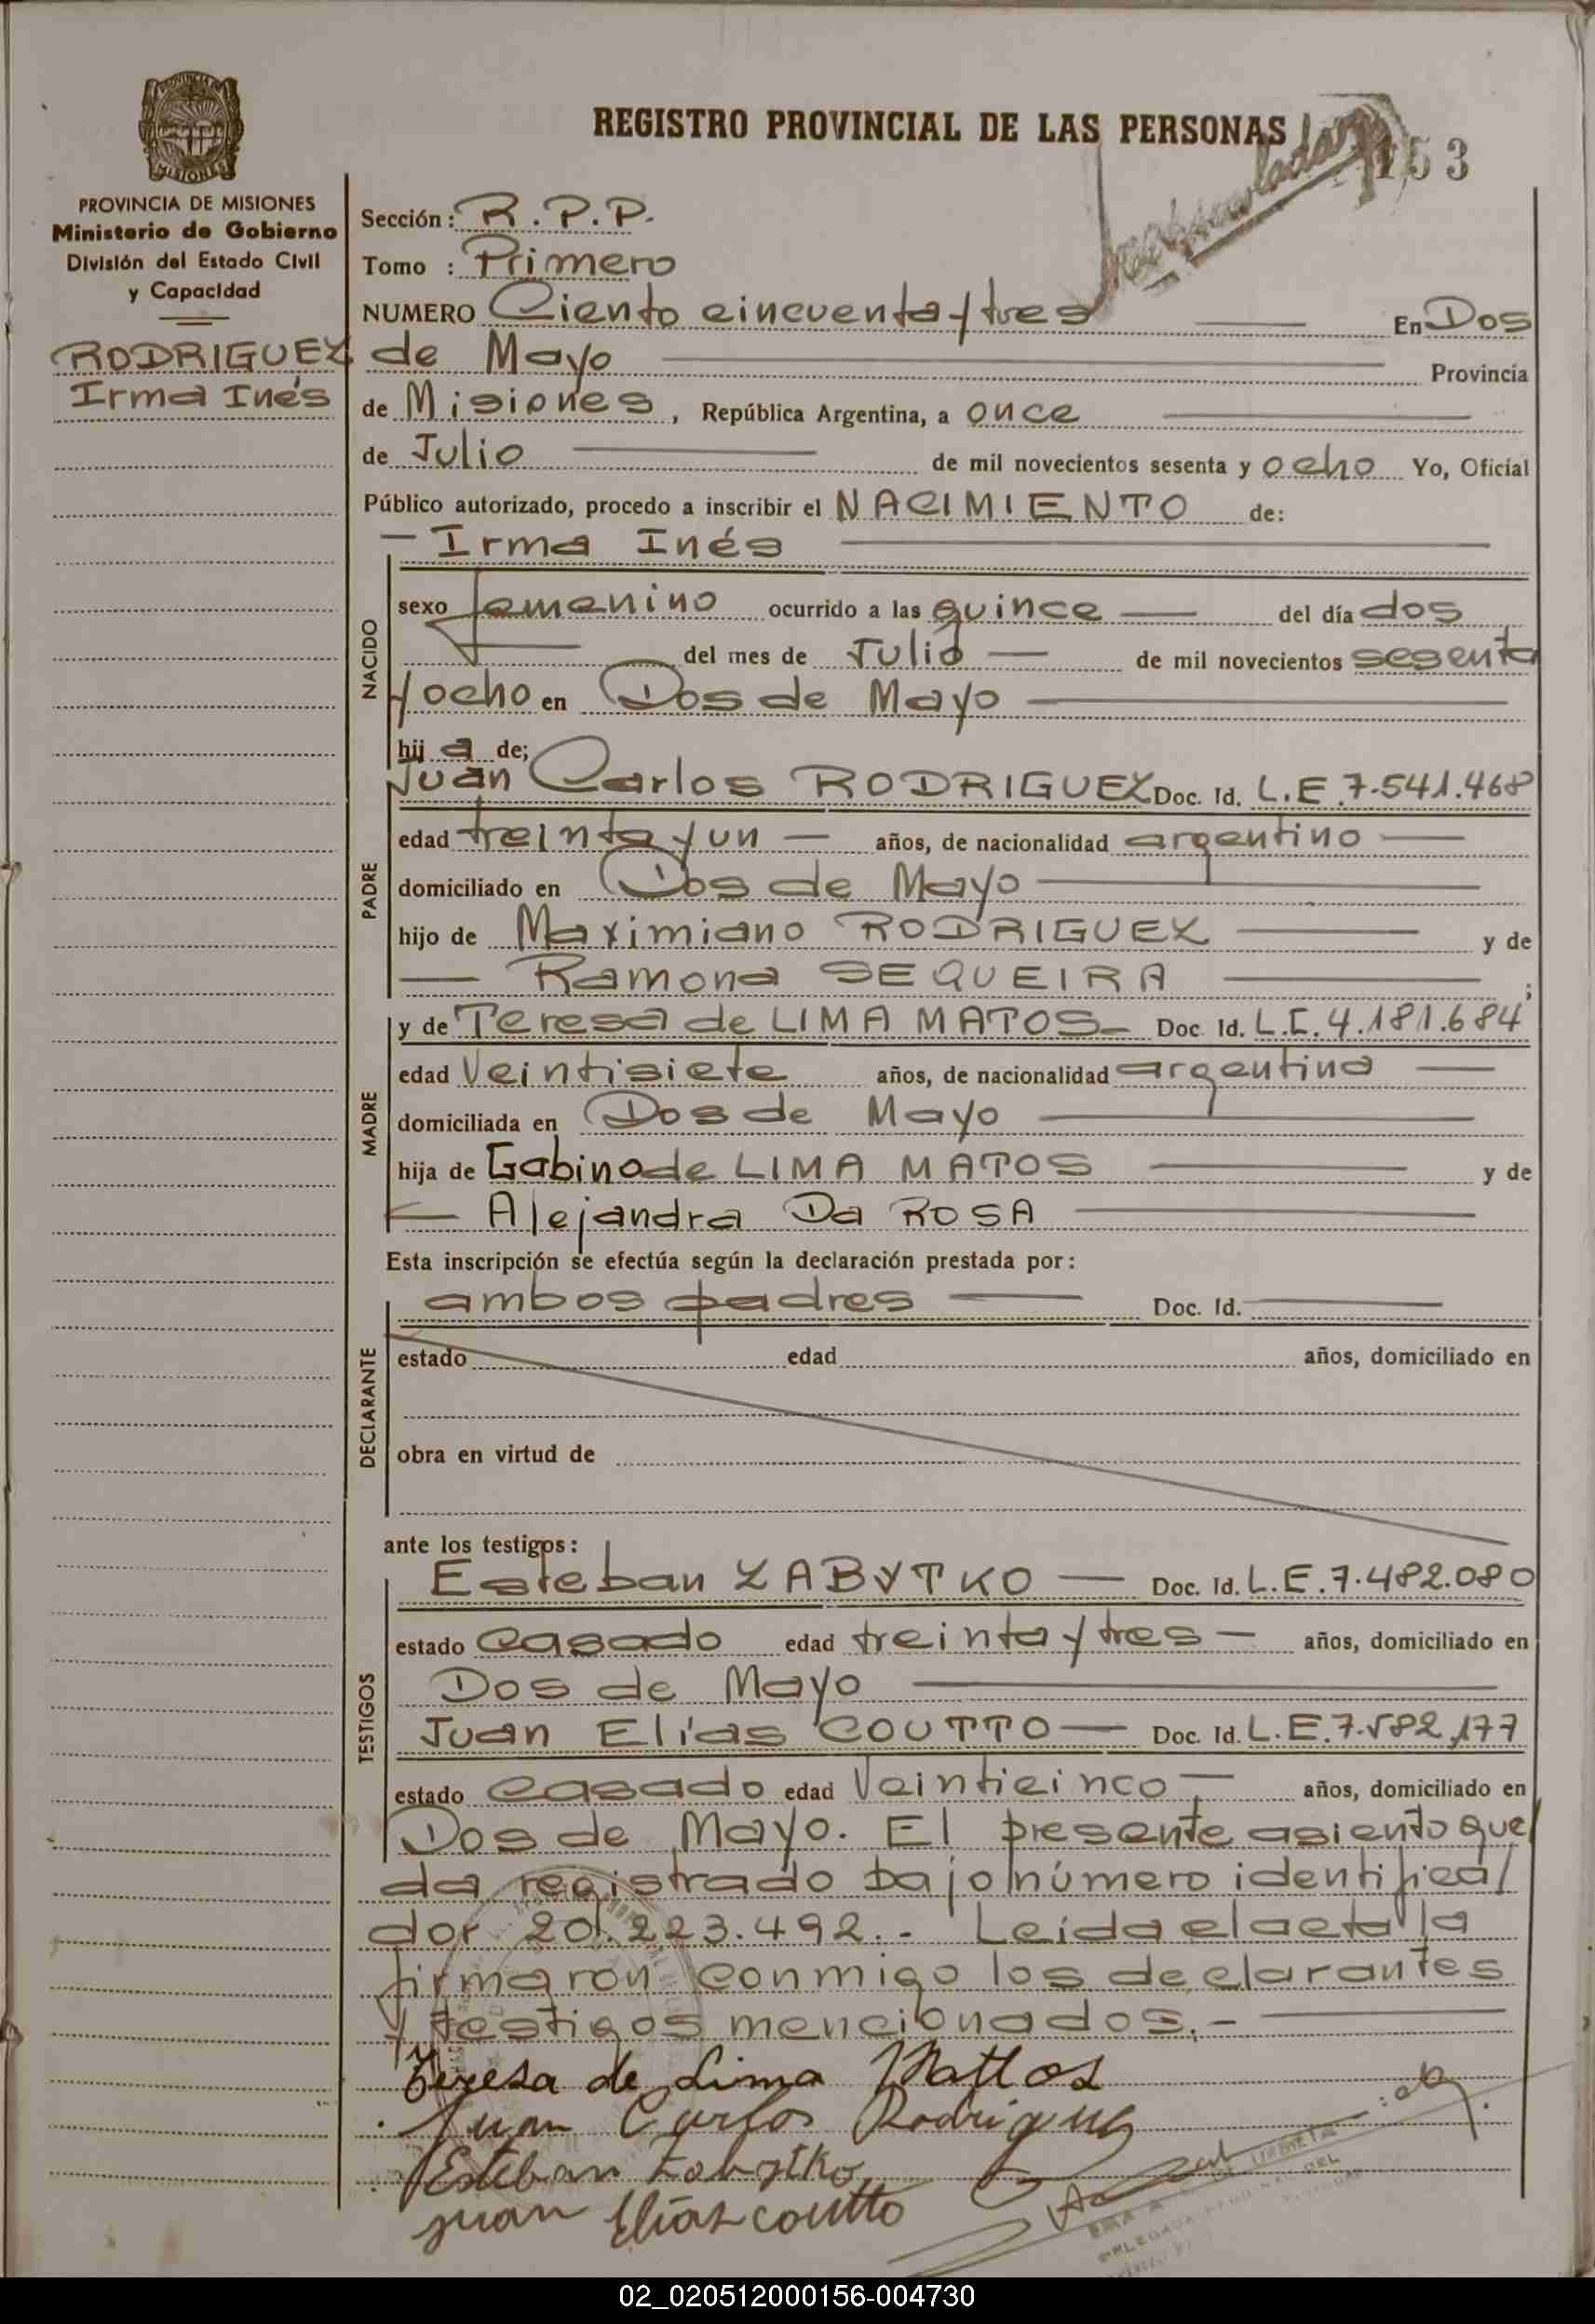 PROVINCIA DE MISIONES
REGISTRO PROVINCIAL DE LAS PERSONAS
153
PROVINCIA DE MISIONES
Ministerio de Gobierno
División del Estado Civil
y Capacidad
RODRIGUEZ
Irma Inés
Sección: R.P.P.
Tomo : Primero
NUMERO Ciento cincuenta y tres En Dos
de Mayo Provincia
de Misiones, República Argentina, a once
de Julio de mil novecientos sesenta y ocho Yo, Oficial
Público autorizado, procedo a inscribir el NACIMIENTO de:
Irma Inés
NACIDO
sexo femenino ocurrido a las quince del día dos
del mes de Julio de mil novecientos sesenta
y ocho en Dos de Mayo
hij a de;
PADRE
Juan Carlos RODRIGUEZ Doc. Id. L.E.7.541.468
edad treinta y un años, de nacionalidad argentino
domiciliado en Dos de Mayo
hijo de Maximiano RODRIGUEZ y de
Ramona SEQUEIRA ;
MADRE
y de Teresa de LIMA MATOS Doc. Id. L.C.4.181.684
edad Veintisiete años, de nacionalidad argentina
domiciliada en Dos de Mayo
hija de Gabino de LIMA MATOS y de
Alejandra Da ROSA
Esta inscripción se efectúa según la declaración prestada por:
DECLARANTE
ambos padres Doc. Id.
estado edad años, domiciliado en
obra en virtud de
ante los testigos:
TESTIGOS
Esteban ZABYTKO Doc. Id. L.E.7.482.080
estado casado edad treinta y tres años, domiciliado en
Dos de Mayo
Juan Elías COUTTO Doc. Id. L.E.7.582.177
estado casado edad Veinticinco años, domiciliado en
Dos de Mayo. El presente asiento que
da registrado bajo número identifica
dor 20.223.492.- Leída el acta la
firmaron conmigo los declarantes
y testigos mencionados.-
Teresa de Lima Mattos
Juan Carlos Rodriguez
Esteban Zabytko
Juan Elías coutto
02_020512000156-004730